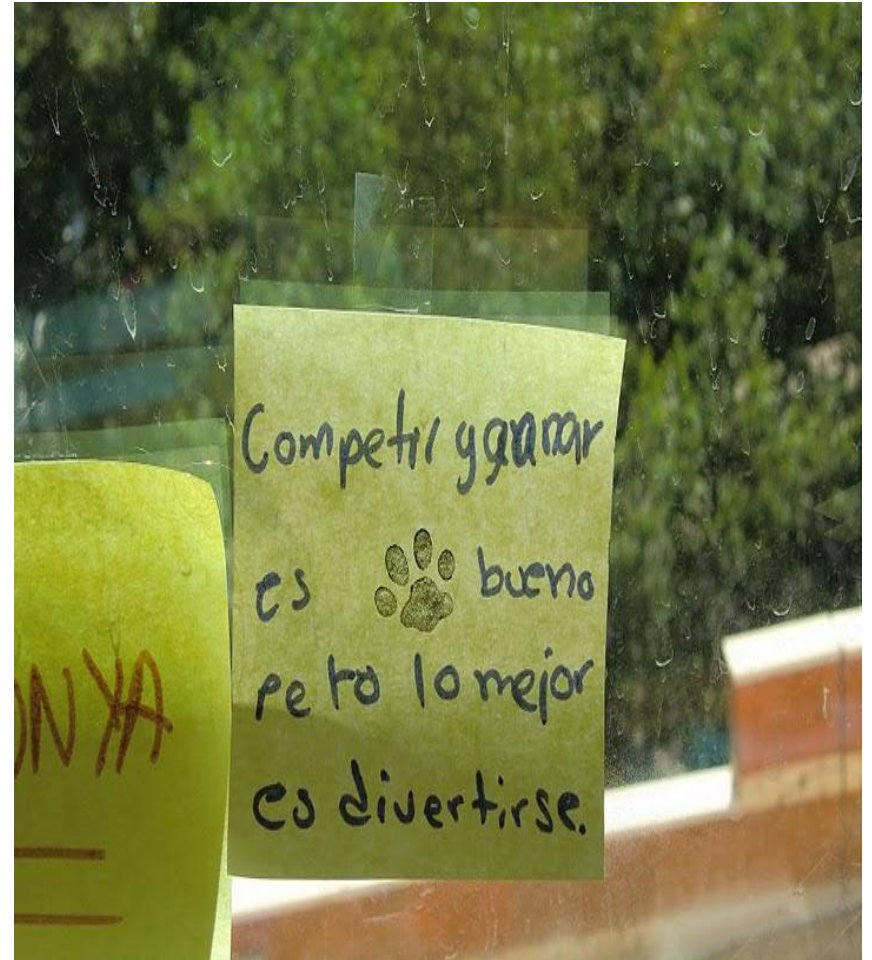 Competir y ganar
es bueno
pero lo mejor
es divertirse.
NYA